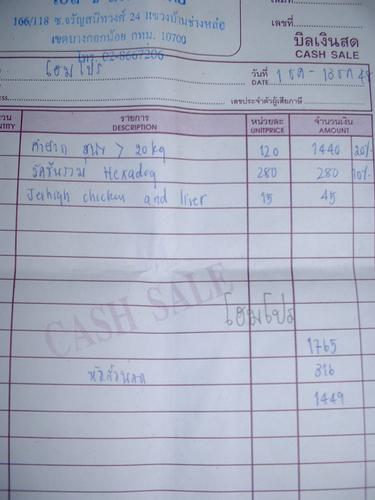 166/118 ซ.จรัญสนิทวงศ์ 24 แขวงบ้านช่างหล่อ
เขตบางกอกน้อย กทม. 10700
โทร. 02-8667206
เลขที่
บิลเงินสด
CASH SALE
โฮมโปร
วันที่ 1 ธค - 13 ธค 49
DATE
เลขประจำตัวผู้เสียภาษี
รายการ หน่วยละ จำนวนเงิน
DESCRIPTION UNITPRICE AMOUNT
> 20 kg 120 1440 20%
Hexadog 280 280 10%
Jerhigh chicken and liver 15 45
CASH SALE
โฮมโปร
1765
หักส่วนลด 316
1449